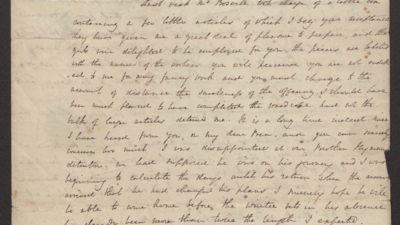 Last week Mr Roscoe took charge of a little box
containing a few little articles of which I beg your acceptance
they have given me a great deal of pleasure to prepare and the
girls were delighted to be employed for you. the pieces are labeled
with the names of the workers. you will perceive you are not indebt
ed to me for any funny work and you must charge to the
account of distance the smallness of the offering. I should have
been much pleased to have completed the wardrobe but the
bulk of large articles detained me. It is a long time indeed since
I have heard from you, or my dear
concern too much. I was disappointed at our Brother
detention. we had supposed he was on his journey and I was
beginning to calculate the days until his return when the
arrived that he had changed his plans I sincerely hope he will
be able to come home before the winter sets in his absence
has been more than twice the length I expected